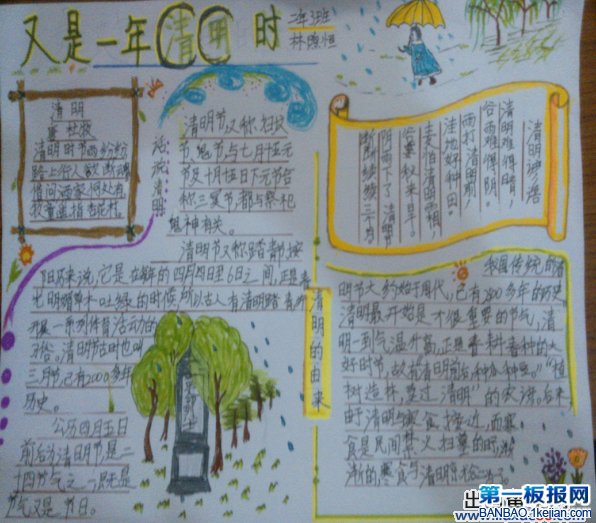 又是一年清明时
二年3班
清明
唐 杜牧
清明时节雨纷纷
路上行人欲断魂
借问酒家何处有
牧童遥指杏花村
话说清明
清明节又称扫坟
节、鬼节与七月十五元
节及十月十五日下元节合
称三冥节,都与祭祀
鬼神有关。
清明节又称踏青节,按
阳历来说,它是在每年的四月四日至6日之间,正是春
光明媚草木吐绿的时候,所以古人有清明踏青,并
开展一系列体育活动的
习俗。清明节古时也叫
三月节,已有2000多年
历史。
公历四月五日
前后为清明节是二
十四节气之一,既是
节气又是节日。
清明谚语
清明难得晴,
谷雨难得阴。
雨打清明前,
洼地好种田。
麦怕清明霜,
谷要秋来旱。
阴雨下了清明节
断断续续三个月
清明的由来
我国传统的清
明节大约始于周代,已有2500多年的历史。
清明最开始是一个很重要的节气,清
明一到气温升高,正是春耕春种的大
好时节,故有"清明前后,种瓜种豆。""植
树造林,莫过清明"的农谚。后来
由于清明与寒食接近,而寒
食是民间禁火扫墓的日子,渐
渐的,寒食与清明合
第一板报网
BANBAO.1kejian.com